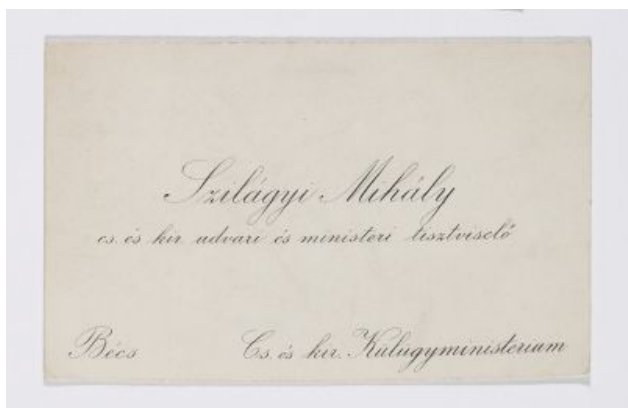 Szilágyi Mihály
cs. és kir. udvari és ministeri tisztviselő
Bécs
Cs. és kir. Külügyministerium